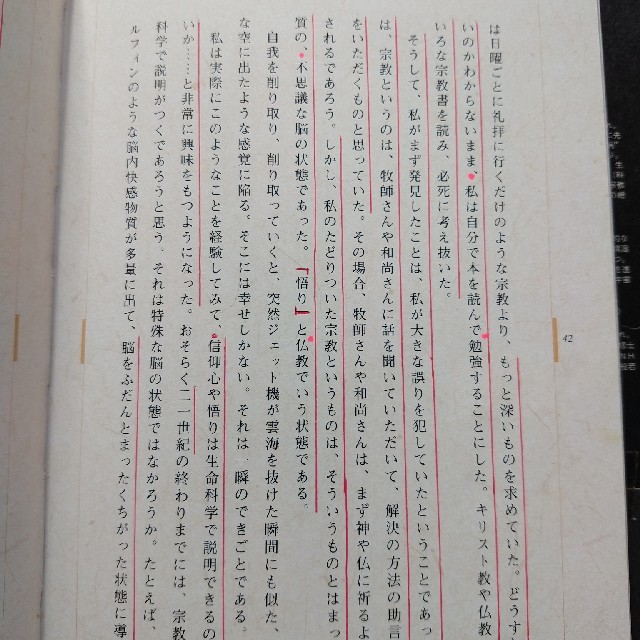 は日曜ごとに礼拝に行くだけのような宗教より、もっと深いものを求めていた。どうす
いのかわからないまま、私は自分で本を読んで勉強することにした。キリスト教や仏教
いろな宗教書を読み、必死に考え抜いた。
そうして、私がまず発見したことは、私が大きな誤りを犯していたということであっ
は、宗教というのは、牧師さんや和尚さんに話を聞いていただいて、解決の方法の助言
をいただくものと思っていた。その場合、牧師さんや和尚さんは、まず神や仏に祈るよ
されるであろう。しかし、私のたどりついた宗教というものは、そういうものとはまっ
質の、不思議な脳の状態であった。「悟り」と仏教でいう状態である。
自我を削り取り、削り取っていくと、突然ジェット機が雲海を抜けた瞬間にも似た、
な空に出たような感覚に陥る。そこには幸せしかない。それは一瞬のできごとである。
私は実際にこのようなことを経験してみて、信仰心や悟りは生命科学で説明できるの
いか……と非常に興味をもつようになった。おそらく二一世紀の終わりまでには、宗教
科学で説明がつくであろうと思う。それは特殊な脳の状態ではなかろうか。たとえば、
ルフィンのような脳内快感物質が多量に出て、脳をふだんとまったくちがった状態に導
42